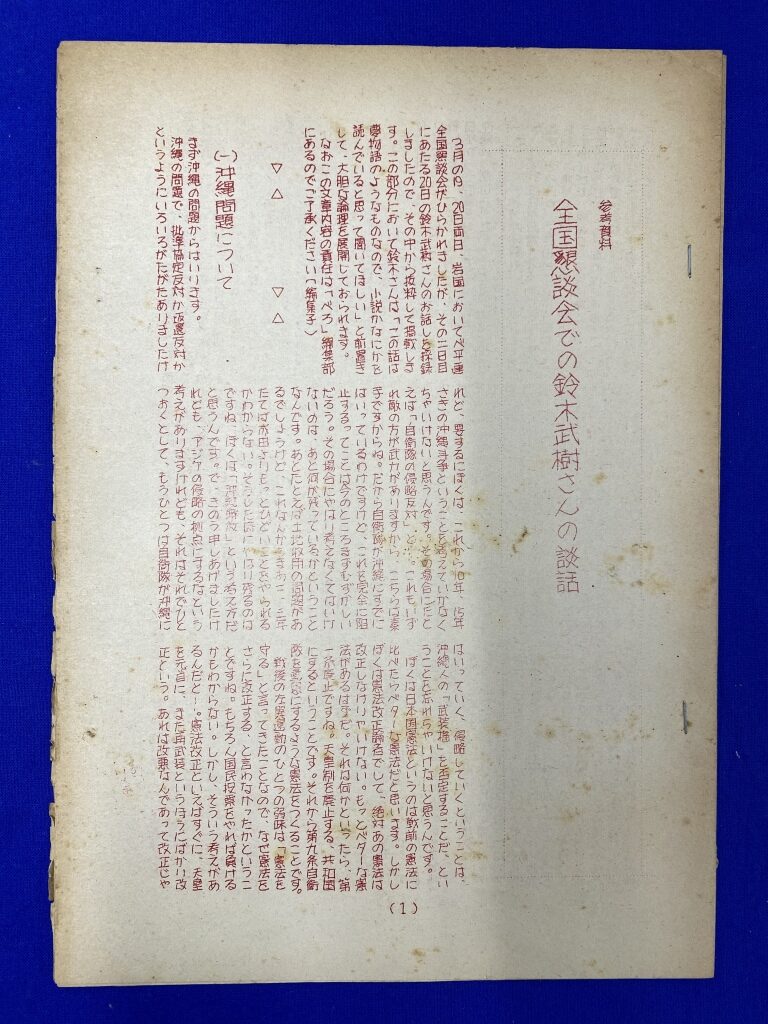 参考資料
全国懇談会での鈴木武樹さんの談話
3月の19、20日両日、岩国においてベ平連
全国懇談会がひらかれましたが、その二日目
にあたる20日の鈴木武樹さんのお話しを採録
しましたので、その中から抜粋して掲載しま
す。この部分において鈴木さんは「この話は
夢物語のようなものなので、小説かなにかを
読んでいると思って聞いてほしい」と前置き
して、大胆な論理を展開しておられます。
なおこの文章内容の責任は「べろ」編集部
にあるのでご了承ください(編集子)
▽△ ▽△
(一)沖縄問題について
まず沖縄の問題からはいります。
沖縄の問題で、批準協定反対か返還反対か
というようにいろいろがたがたありましたけ
れど、要するにぼくは、これから10年、15年
さきの沖縄斗争ということを考えていかなく
ちゃいけないと思うんです。その場合にたと
えば「自衛隊の侵略反対」と…。これもいず
れ敵の方が武力がありますから、こちらは素
手ですからね。だから自衛隊が沖縄にすでに
はいっているわけですけど、これを完全に阻
止するってことは今のところまずむずかしい
だろう。その場合にやはり考えなくてはいけ
ないのは、あと何が残っているかということ
なんです。あとたとえば土地収用の問題があ
るでしょうけど、これなんかもあと二、三年
たてば本田よりもっとひどいことをやられる
かわからない。そうした時にやはり残るのは
ですね、ぼくは「という考え方だ
と思うんです。で、きのう申しあげましたけ
れども、アジアの侵略の拠点にするなという
考えがありますけれども、それはそれでひと
つおくとして、もうひとつは自衛隊が沖縄に
はいっていく、侵略していくということは、
沖縄人の「武装権」を否定することだ、とい
うことを忘れちゃいけないと思うんです。
ぼくは日本国憲法というのは戦前の憲法に
比べたらベターな憲法だと思います。しかし
ぼくは憲法改正論者でして、絶対あの憲法は
改正しなけりゃいけない。もっとベターな憲
法があるはずだ。それは何かといったら、第
一条廃止ですね。天皇制を廃止する、共和国
にするということです。それから第九条自衛
隊を違憲にするような憲法をつくることです。
戦後の左翼運動のひとつの弱味は「憲法を
守る」と言ってきたことなので、なぜ憲法を
さらに改正する、と言わなかったかというこ
とですね。もちろん国民投票をやれば負ける
かもわからない。しかし、そういう考えがあ
るんだと…。憲法改正といえばすぐに、天皇
を元首に、また再武装というほうにばかり改
正という。あれは改悪なんであって改正じゃ
(1)